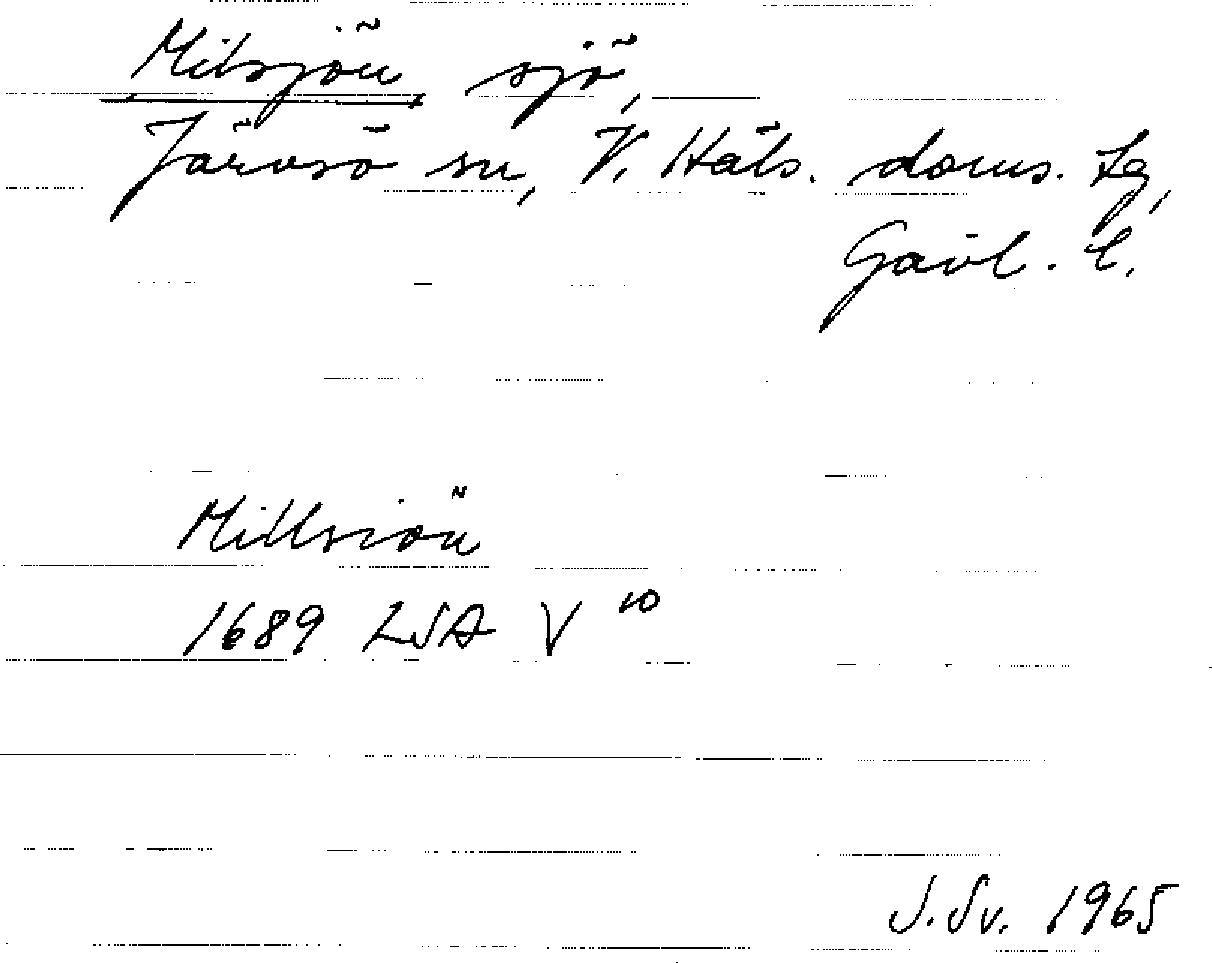 Milsjön sjö,
Järvsö sn, V. Häls. doms. Lg,
Gävl. l.
Millsiön
1689 LSA V 10
J.Sv. 1965